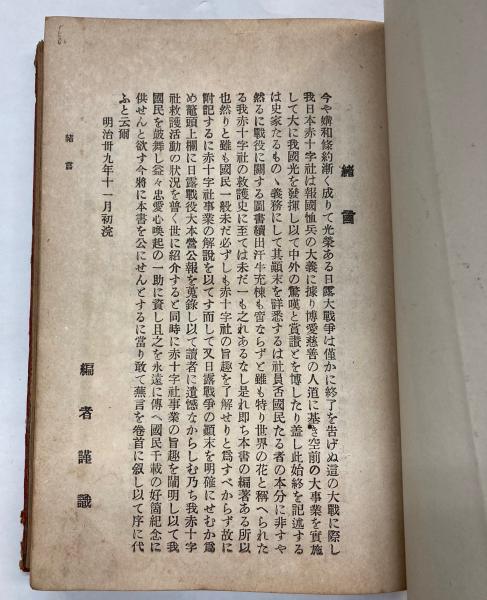 緒言
今や媾和條約漸く成りて光榮ある日露大戰爭は僅かに終了を告げぬ這の大戰に際し
我日本赤十字社は報國恤兵の大義に據り博愛慈善の人道に基き空前の大事業を實施
して大に我國光を發揮し以て中外の驚嘆と賞讃とを博したり盖し此始終を記述する
は史家たるものゝ義務にして其顚末を詳悉するは社員否國民たる者の本分に非すや
然るに戰役に關する圖書續出汗牛充棟も啻ならずと雖も特り世界の花と稱へられた
る我赤十字社の救護史に至ては未だ一も之れあるなし是れ即ち本書の編著ある所以
也然りと雖も國民一般未だ必ずしも赤十字社の旨趣を了解せりと爲すべからず故に
附記するに赤十字社事業の解說を以てす而して又日露戰爭の顚末を明確にせむか爲
め鼇頭上欄に日露戰役大本營公報を蒐錄し以て讀者に遺憾なからしむ乃ち我赤十字
社救護活動の狀況を普く世に紹介すると同時に赤十字社事業の旨趣を闡明し以て我
國民を鼓舞し益々忠愛心喚起の一助に資し且之を永遠に傳へ國民千載の好箇紀念に
供せんと欲す今將に本書を公にせんとするに當り敢て蕪言を卷首に叙し以て序に代
ふと云爾
明治卅九年十一月初浣
編者謹識
緒言